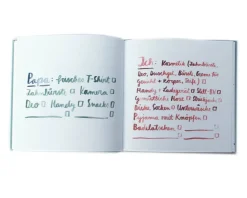 Papa: frisches T-Shirt ☐
Zahnbürste ☐ Kamera ☐
Deo ☐ Handy ☐ Snacks ☐
Ich: Kosmetik (Zahnbürste,
Deo, Duschgel, Bürste, Creme für
Gesicht + Körper, Seife) ☐
Handy + Ladegerät ☐ Still-BH ☐
Gemütliche Hose ☐ ☐
Dicke Socken ☐ Unterwäsche ☐
Pyjama mit Knöpfen ☐
Badelatschen ☐